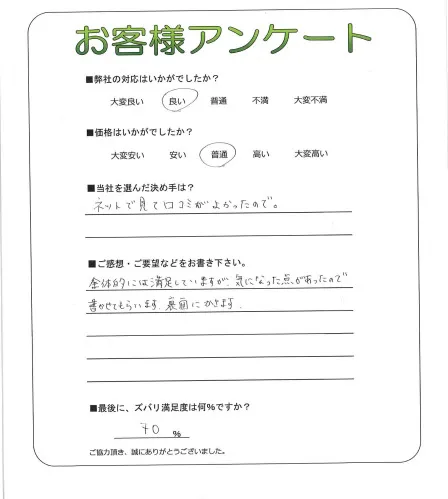 お客様アンケート
■弊社の対応はいかがでしたか？
大変良い 良い 普通 不満 大変不満
■価格はいかがでしたか？
大変安い 安い 普通 高い 大変高い
■当社を選んだ決め手は？
ネットで見て口コミがよかったので。
■ご感想・ご要望などをお書き下さい。
全体的には満足していますが、気になった点があったので
書かせてもらいます。裏面にかきます。
■最後に、ズバリ満足度は何%ですか？
70 %
ご協力頂き、誠にありがとうございました。